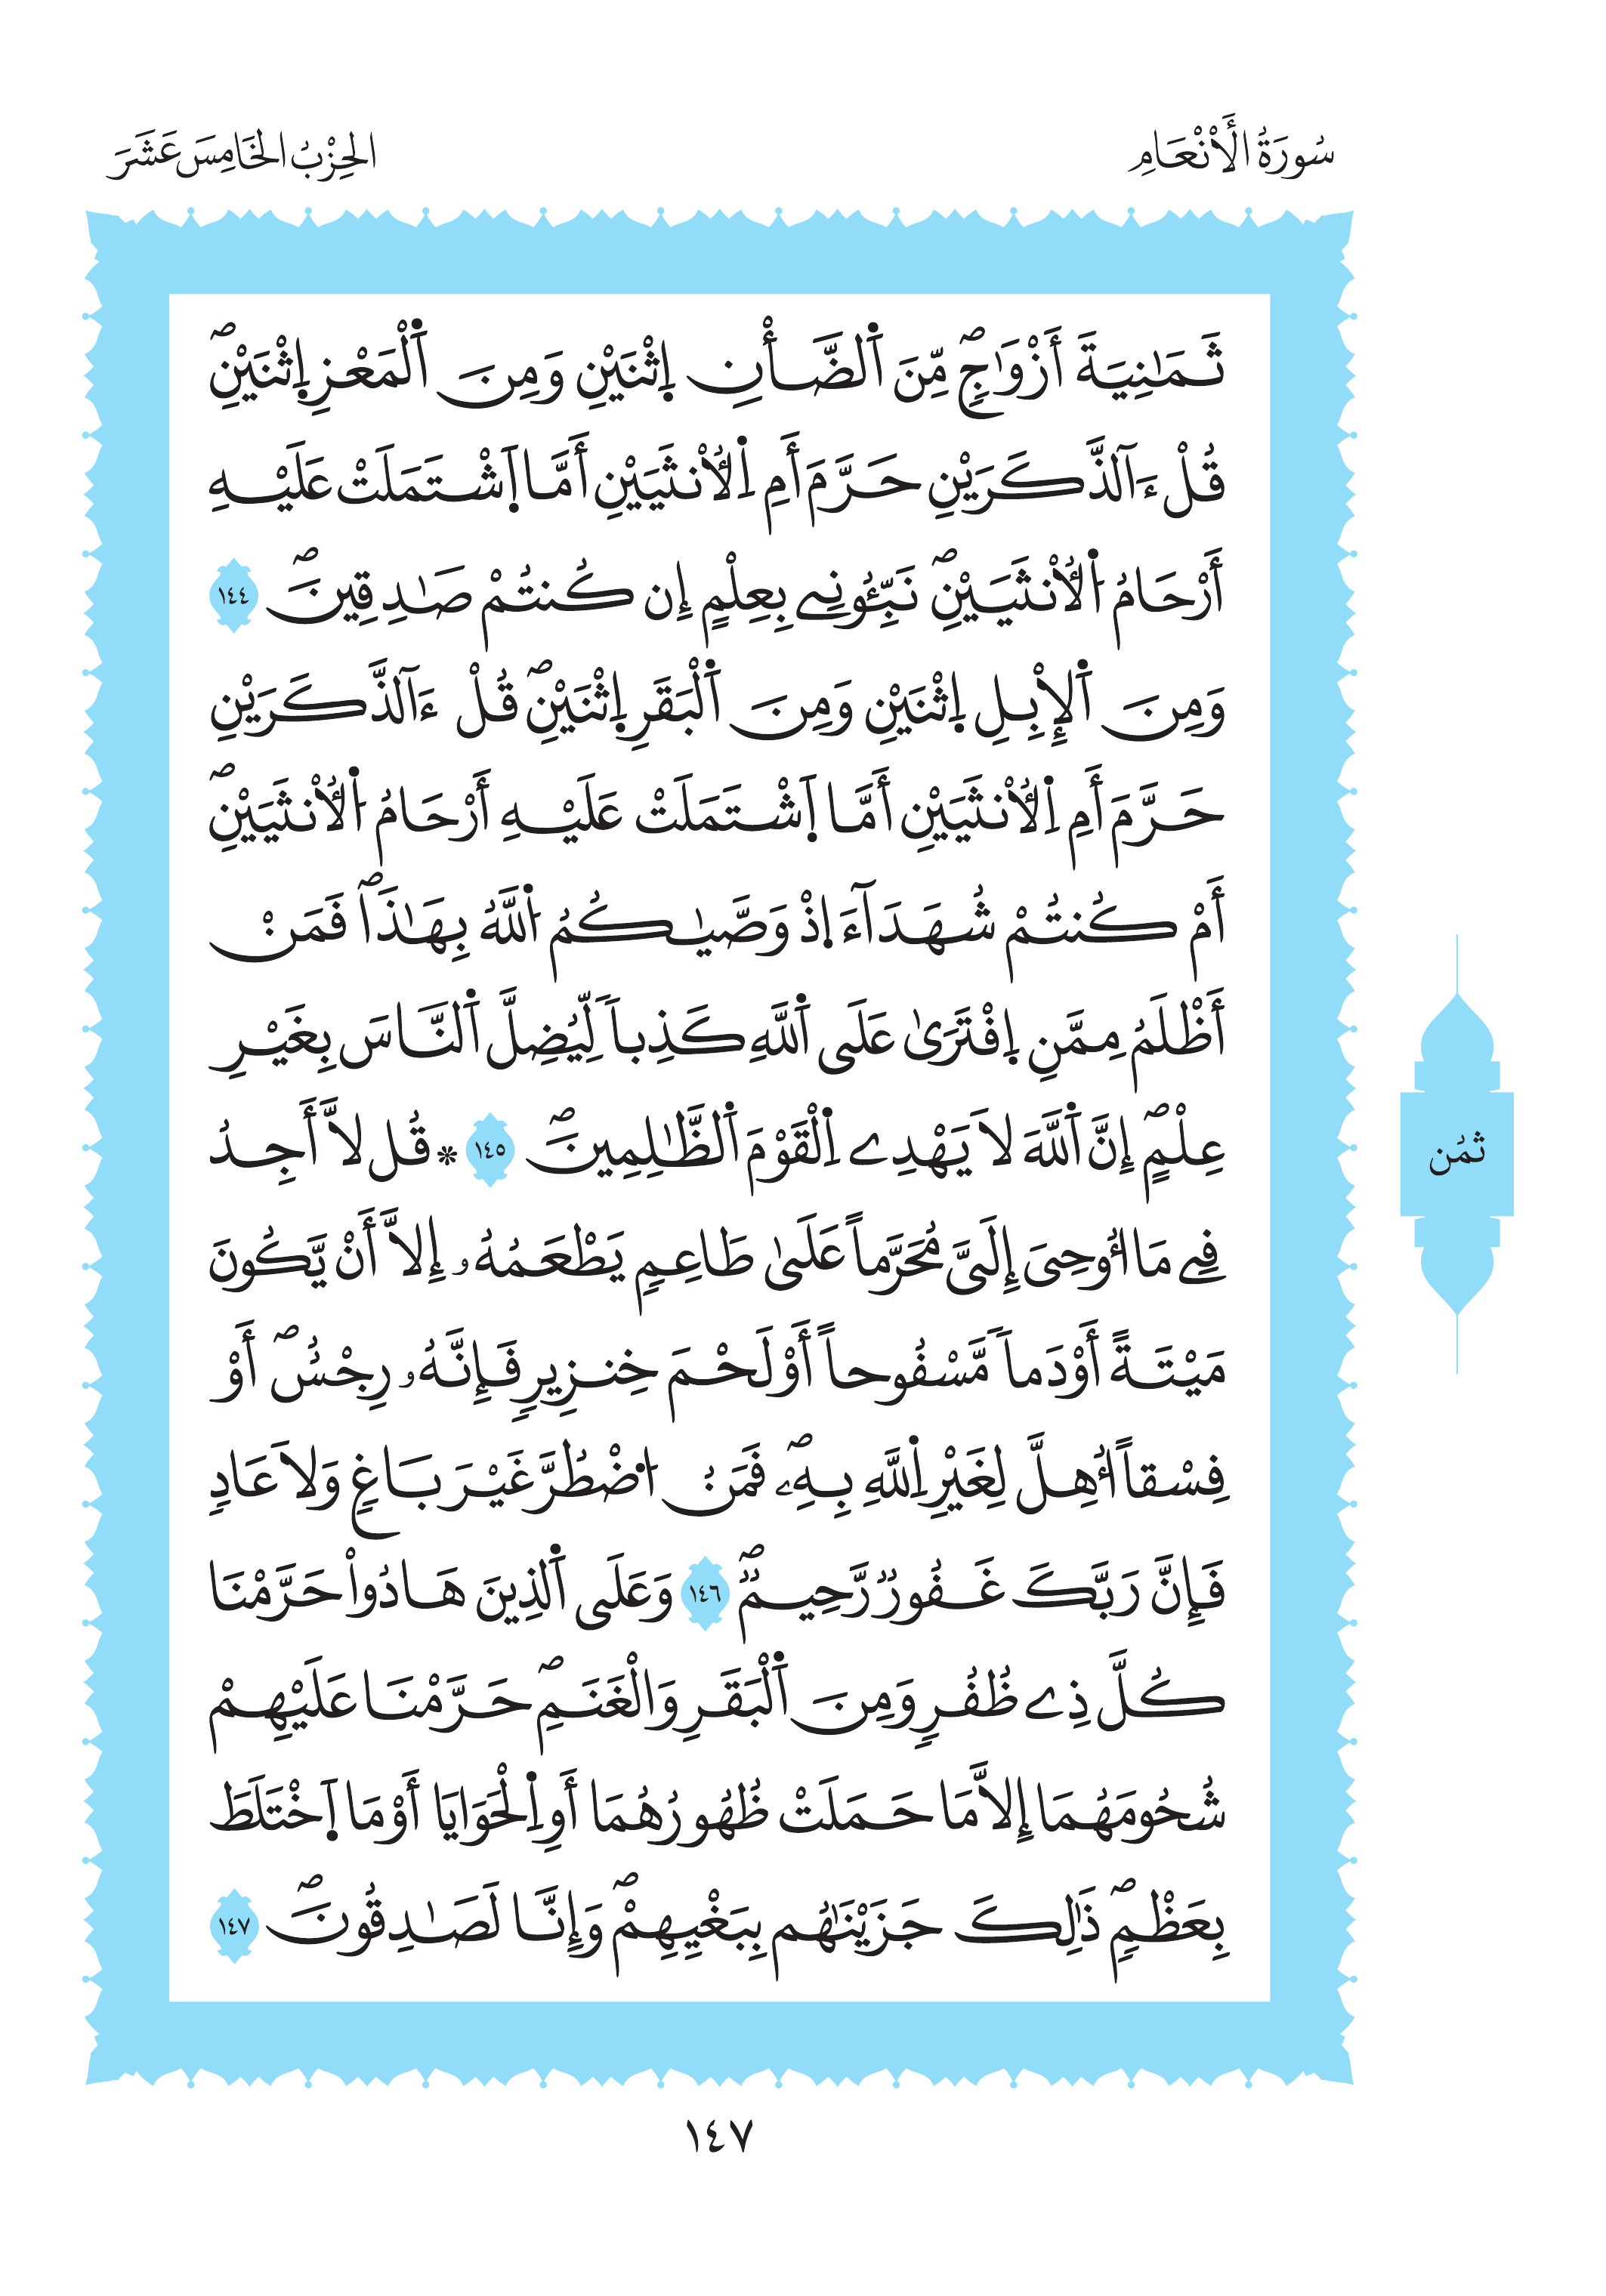 سُورَةُ الْأَنْعَامِ
الحِزْبُ الخَامِسَ عَشَرَ
ثَمَٰنِيَةَ أَزْوَٰجٍۖ مِّنَ اَ۬لضَّأْنِ اِثْنَيْنِ وَمِنَ اَ۬لْمَعْزِ اِثْنَيْنِۖ
قُلْ ءَآلذَّكَرَيْنِ حَرَّمَ أَمِ اِ۬لُانثَيَيْنِ أَمَّا اَ۪شْتَمَلَتْ عَلَيْهِ
أَرْحَامُ اُ۬لُانثَيَيْنِۖ نَبِّـُٔونِے بِعِلْمٍ إِن كُنتُمْ صَٰدِقِينَۖ ١٤٤
وَمِنَ اَ۬لِابِلِ اِثْنَيْنِ وَمِنَ اَ۬لْبَقَرِ اِثْنَيْنِۖ قُلْ ءَآلذَّكَرَيْنِ
حَرَّمَ أَمِ اِ۬لُانثَيَيْنِ أَمَّا اَ۪شْتَمَلَتْ عَلَيْهِ أَرْحَامُ اُ۬لُانثَيَيْنِۖ
أَمْ كُنتُمْ شُهَدَآءَ اِذْ وَصَّيٰكُمُ اُ۬للَّهُ بِهَٰذَاۖ فَمَنَ
أَظْلَمُ مِمَّنِ اِ۪فْتَرَىٰ عَلَى اَ۬للَّهِ كَذِباٗ لِّيُضِلَّ اَ۬لنَّاسَ بِغَيْرِ
عِلْمٍۖ إِنَّ اَ۬للَّهَ لَا يَهْدِے اِ۬لْقَوْمَ اَ۬لظَّٰلِمِينَۖ ١٤٥ ۞ قُل لَّا أَجِدُ
فِے مَا أُوحِيَ إِلَيَّ مُحَرَّماً عَلَىٰ طَاعِمٖ يَطْعَمُهُۥ إِلَّا أَنْ يَّكُونَ
مَيْتَةً أَوْ دَماٗ مَّسْفُوحاً أَوْ لَحْمَ خِنزِيرٖ فَإِنَّهُۥ رِجْسٌۖ أَوْ
فِسْقاً اُهِلَّ لِغَيْرِ اِ۬للَّهِ بِهِۦۖ فَمَنُ اُ۟ضْطُرَّ غَيْرَ بَاغٖ وَلَا عَادٖ
فَإِنَّ رَبَّكَ غَفُورٞ رَّحِيمٞۖ ١٤٦ وَعَلَى اَ۬لذِينَ هَادُواْ حَرَّمْنَا
كُلَّ ذِے ظُفُرٖ وَمِنَ اَ۬لْبَقَرِ وَالْغَنَمِۖ حَرَّمْنَا عَلَيْهِمْ
شُحُومَهُمَا إِلَّا مَا حَمَلَتْ ظُهُورُهُمَا أَوِ اِ۬لْحَوَايَا أَوْ مَا اَ۪خْتَلَطَ
بِعَظْمٖۖ ذَٰلِكَ جَزَيْنَٰهُم بِبَغْيِهِمْۖ وَإِنَّا لَصَٰدِقُونَۖ ١٤٧
ثُمُن
١٤٧